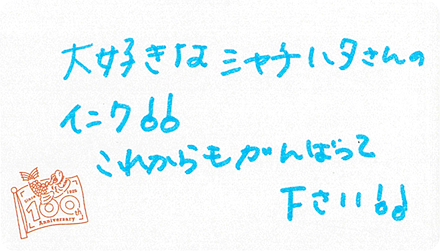 大好きな シャチハタさんの
インク!!
これからもがんばって
下さい!!
since 1925
100th
Anniversary